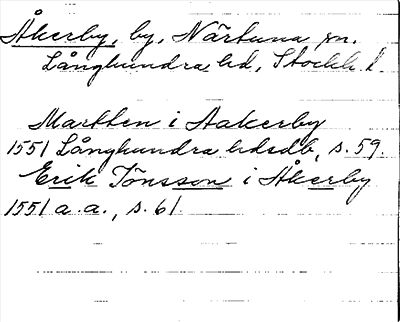 Åkerby, by, Närtuna sn.
Långhundra hd, Stockh. l.
Martten i Aakerby
1551 Långhundra hdsdb, s. 59.
Erik Jönsson i Åkerby
1551 a.a., s. 61